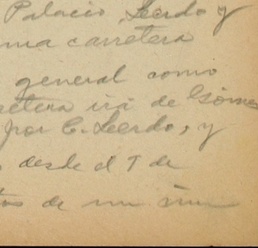 Palacio, Lerdo y
una carretera
general como
retera irá de Gómez
por C. Lerdo, y
desde el 7 de
de un